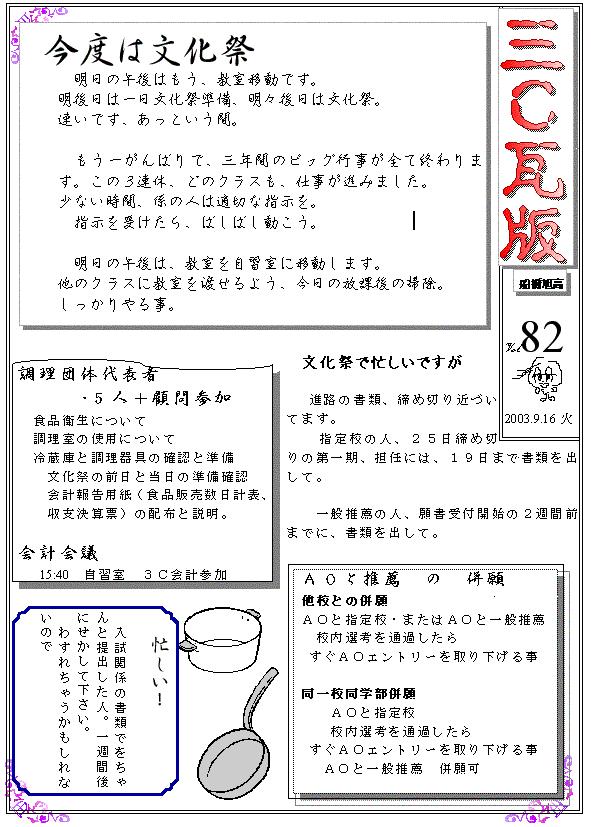 三C瓦版
船橋旭高
No.82
2003.9.16 火
今度は文化祭
明日の午後はもう、教室移動です。
明後日は一日文化祭準備、明々後日は文化祭。
速いです、あっという間。
もう一がんばりで、三年間のビッグ行事が全て終わりま
す。この3連休、どのクラスも、仕事が進みました。
少ない時間、係の人は適切な指示を。
指示を受けたら、ばしばし動こう。
明日の午後は、教室を自習室に移動します。
他のクラスに教室を渡せるよう、今日の放課後の掃除。
しっかりやる事。
調理団体代表者
・5人+顧問参加
食品衛生について
調理室の使用について
冷蔵庫と調理器具の確認と準備
文化祭の前日と当日の準備確認
会計報告用紙(食品販売数日計表、
収支決算票)の配布と説明。
会計会議
15:40 自習室 3C会計参加
文化祭で忙しいですが
進路の書類、締め切り近づい
てます。
指定校の人、25日締め切
りの第一期、担任には、19日まで書類を出
して。
一般推薦の人、願書受付開始の2週間前
までに、書類を出して。
AOと推薦 の 併願
他校との併願
AOと指定校・またはAOと一般推薦
校内選考を通過したら
すぐAOエントリーを取り下げる事
同一校同学部併願
AOと指定校
校内選考を通過したら
すぐAOエントリーを取り下げる事
AOと一般推薦 併願可
忙しい!
入試関係の書類でをちゃ
んと提出した人。一週間後
にせかして下さい。
わすれちゃうかもしれな
いので